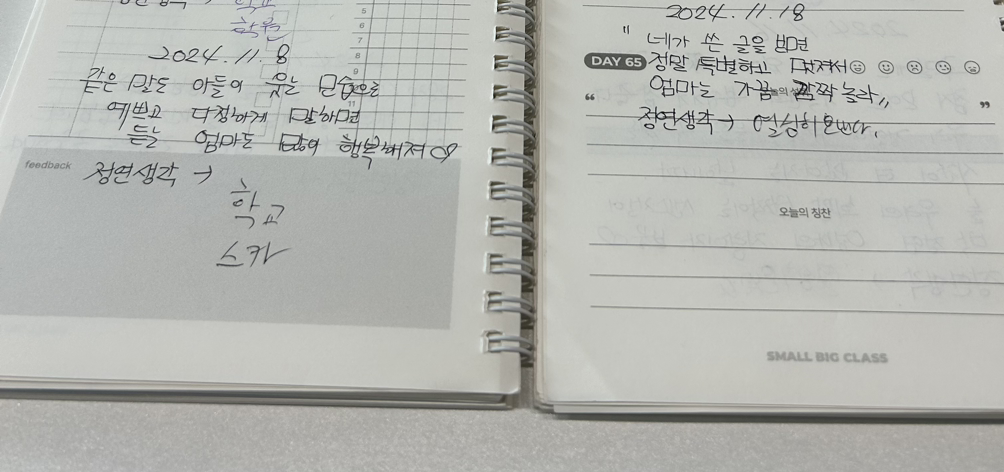 학교
학원
2024.11.8
같은 말도 아들의 웃는 모습으로
예쁘고 다정하게 말하면
듣는 엄마도 많이 행복해져♡
feedback
정연생각 →
학교
스카
5
6
7
8
9
11
2024.11.18
"네가 쓴 글을 보면
DAY 65
정말 특별하고 멋져서
엄마는 가끔 깜짝 놀라"
정연생각→ 열심히 쓴다.
오늘의 칭찬
SMALL BIG CLASS